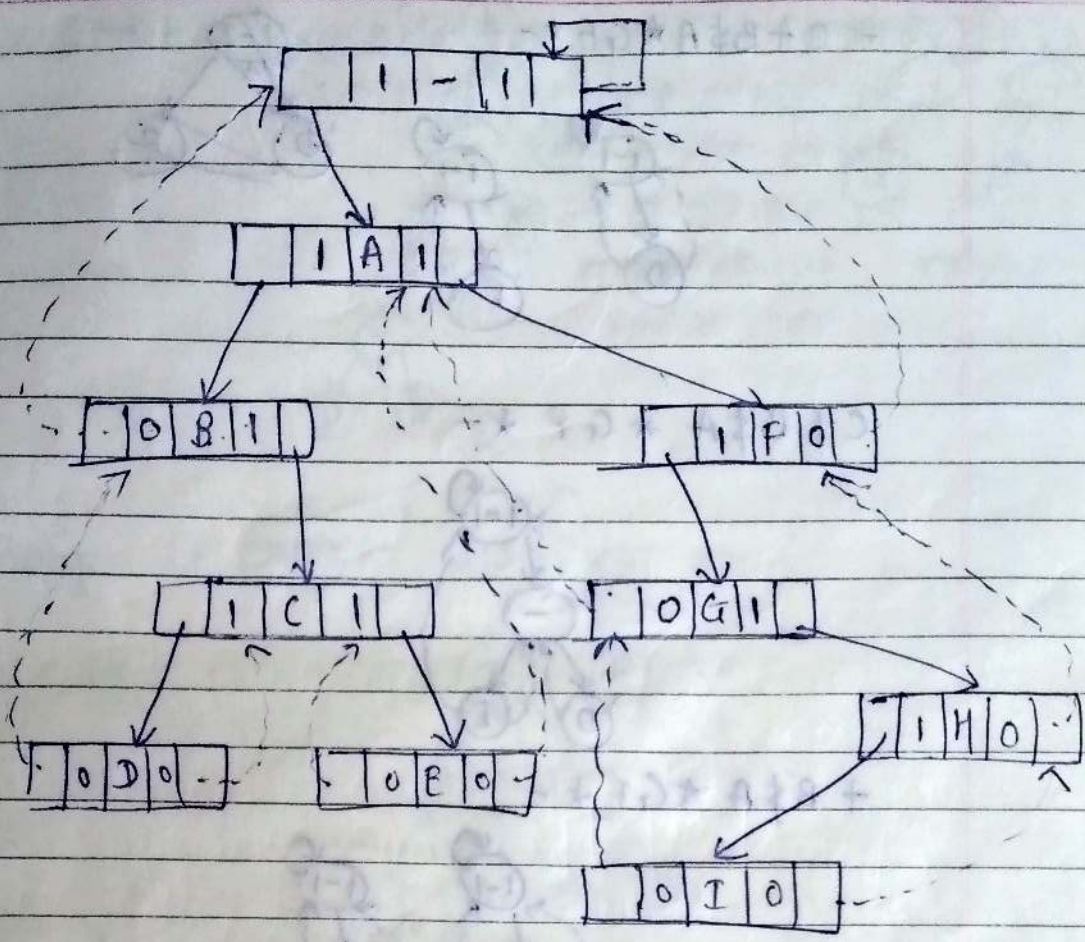 1 - 1
1 A 1
0 B 1
1 F 0
1 C 1
0 G 1
1 H 0
0 D 0
0 E 0
0 I 0